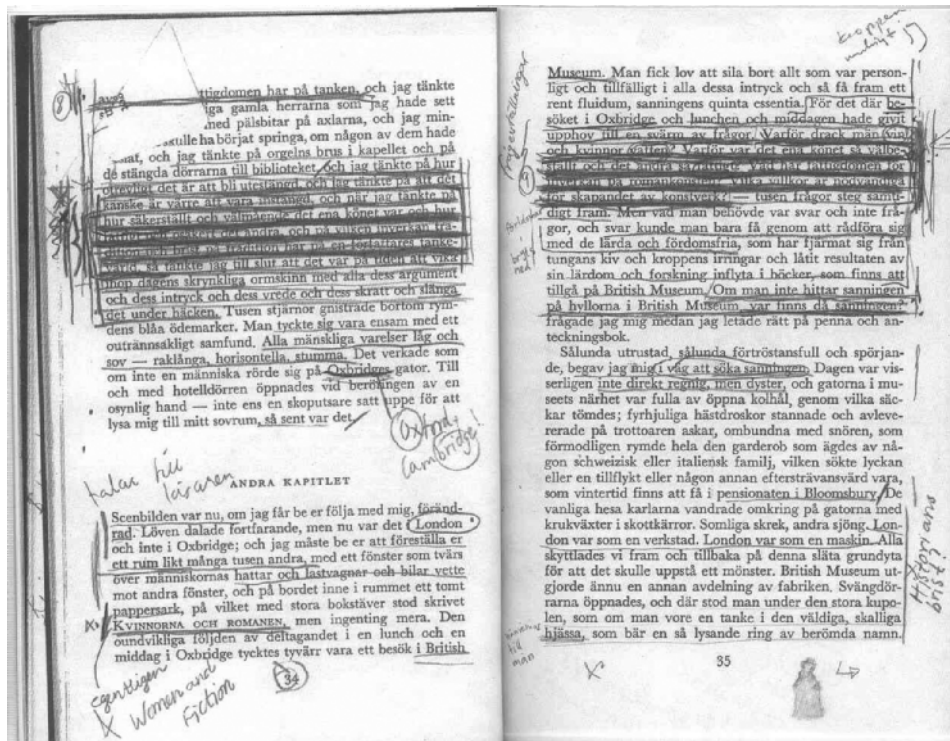 ttigdomen har på tanken, och jag tänkte
iga gamla herrarna som jag hade sett
med pälsbitar på axlarna, och jag min-
skulle ha börjat springa, om någon av dem hade
och jag tänkte på orgelns brus i kapellet och på
de stängda dörrarna till biblioteket, och jag tänkte på hur
otrevligt det är att bli utestängd, och jag tänkte på att det
kanske är värre att vara instängd, och när jag tänkte på
hur säkerställt och välmående det ena könet var och hur
fattigt och osäkert det andra, och på vilken inverkan tra-
dition och brist på tradition har på en författares tanke-
värld, så tänkte jag till slut att det var på tiden att vika
ihop dagens skrynkliga ormskinn med alla dess argument
och dess intryck och dess vrede och dess skratt och slänga
det under häcken. Tusen stjärnor gnistrade bortom rym-
dens blåa ödemarker. Man tyckte sig vara ensam med ett
outrannsakligt samfund. Alla mänskliga varelser låg och
sov — raklånga, horisontella, stumma. Det verkade som
om inte en människa rörde sig på Oxbridges gator. Till
och med hotelldörren öppnades vid beröringen av en
osynlig hand — inte ens en skoputsare satt uppe för att
lysa mig till mitt sovrum, så sent var det.
Oxford,
Cambridge!
talar till
läsaren
ANDRA KAPITLET
Scenbilden var nu, om jag får be er följa med mig, föränd-
rad. Löven dalade fortfarande, men nu var det i London
och inte i Oxbridge; och jag måste be er att föreställa er
ett rum likt många tusen andra, med ett fönster som tvärs
över människornas hattar och lastvagnar och bilar vette
mot andra fönster, och på bordet inne i rummet ett tomt
pappersark, på vilket med stora bokstäver stod skrivet
KVINNORNA OCH ROMANEN, men ingenting mera. Den
oundvikliga följden av deltagandet i en lunch och en
middag i Oxbridge tycktes tyvärr vara ett besök i British
34
egentligen
Women and
Fiction
kroppen
Museum. Man fick lov att sila bort allt som var person-
ligt och tillfälligt i alla dessa intryck och så få fram ett
rent fluidum, sanningens quinta essentia. För det där be-
söket i Oxbridge och lunchen och middagen hade givit
upphov till en svärm av frågor. Varför drack män vin
och kvinnor vatten? Varför var det ena könet så välbe-
ställt och det andra så fattigt? Vad har fattigdomen för
inverkan på romankonsten? Vilka villkor är nödvändiga
för skapandet av konstverk? — tusen frågor steg samti-
digt fram. Men vad man behövde var svar och inte frå-
gor, och svar kunde man bara få genom att rådföra sig
med de lärda och fördomsfria, som har fjärmat sig från
tungans kiv och kroppens irringar och låtit resultaten av
sin lärdom och forskning inflyta i böcker, som finns att
tillgå på British Museum. Om man inte hittar sanningen
på hyllorna i British Museum, var finns då sanningen?
frågade jag mig medan jag letade rätt på penna och an-
teckningsbok.
Sålunda utrustad, sålunda förtröstansfull och spörjan-
de, begav jag mig i väg att söka sanningen. Dagen var vis-
serligen inte direkt regnig, men dyster, och gatorna i mu-
seets närhet var fulla av öppna kolhål, genom vilka säc-
kar tömdes; fyrhjuliga hästdroskor stannade och avleve-
rerade på trottoaren askar, ombundna med snören, som
förmodligen rymde hela den garderob som ägdes av nå-
gon schweizisk eller italiensk familj, vilken sökte lyckan
eller en tillflykt eller någon annan eftersträvansvärd vara,
som vintertid finns att få i pensionaten i Bloomsbury. De
vanliga hesa karlarna vandrade omkring på gatorna med
krukväxter i skottkärror. Somliga skrek, andra sjöng. Lon-
don var som en verkstad. London var som en maskin. Alla
skyttlades vi fram och tillbaka på denna släta grundyta
för att det skulle uppstå ett mönster. British Museum ut-
gjorde ännu en annan avdelning av fabriken. Svängdör-
rarna öppnades, och där stod man under den stora kupo-
len, som om man vore en tanke i den väldiga, skalliga
hjässa, som bär en så lysande ring av berömda namn.
Historiens
brist?
till
män
35